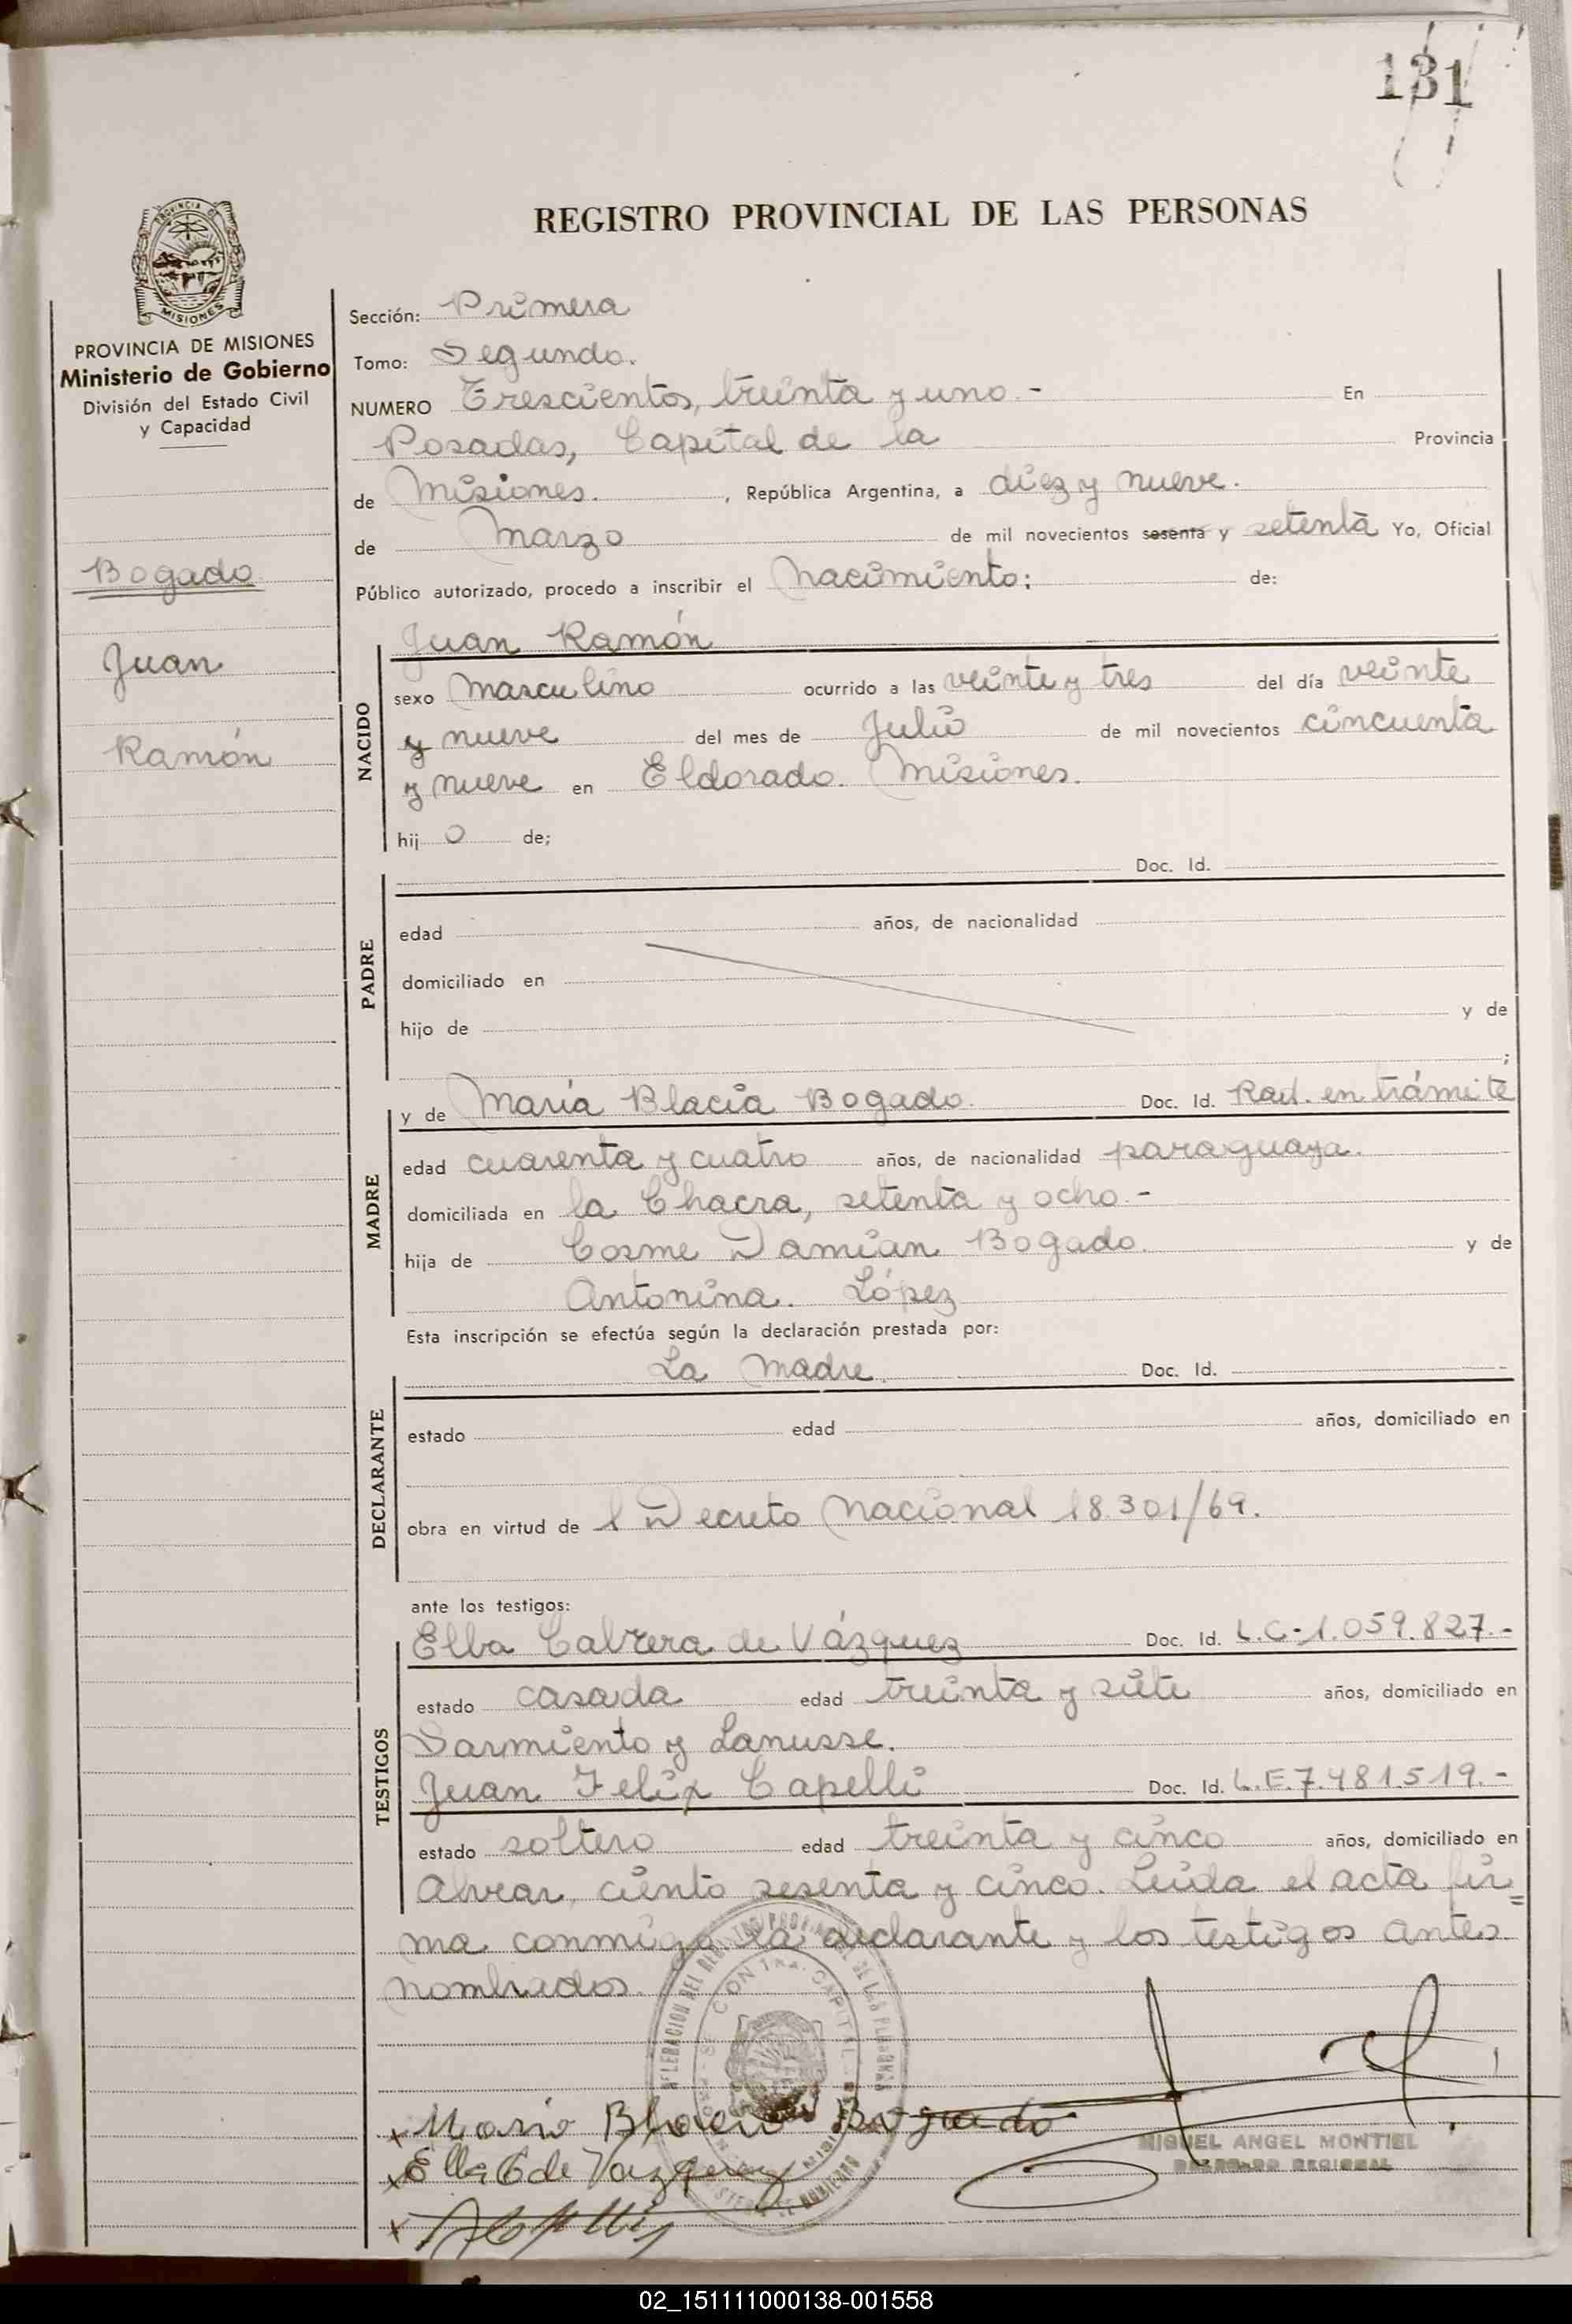 131
REGISTRO PROVINCIAL DE LAS PERSONAS
PROVINCIA DE MISIONES
Ministerio de Gobierno
División del Estado Civil
y Capacidad
Bogado
Juan
Ramón
Sección: Primera
Tomo: Segundo.
NUMERO Trescientos, treinta y uno.- En
Posadas, Capital de la Provincia
de Misiones. , República Argentina, a diez y nueve.
de Marzo de mil novecientos sesenta y setenta Yo, Oficial
Público autorizado, procedo a inscribir el Nacimiento: de:
NACIDO
Juan Ramón
sexo masculino ocurrido a las veinte y tres del día veinte
y nueve del mes de Julio de mil novecientos cincuenta
y nueve en Eldorado. Misiones.
hij o de;
PADRE
Doc. Id.
edad años, de nacionalidad
domiciliado en
hijo de y de
;
MADRE
y de María Blacia Bogado. Doc. Id. Rad. en trámite
edad cuarenta y cuatro años, de nacionalidad paraguaya.
domiciliada en la Chacra, setenta y ocho.-
hija de Cosme Damian Bogado. y de
Antonina. López
Esta inscripción se efectúa según la declaración prestada por:
DECLARANTE
La Madre. Doc. Id.
estado edad años, domiciliado en
obra en virtud de l Decreto Nacional 18.301/69.
ante los testigos:
TESTIGOS
Elba Cabrera de Vázquez Doc. Id. L.C-1.059.827.-
estado casada edad treinta y siete años, domiciliado en
Sarmiento y Lanusse.
Juan Felix Capelli Doc. Id. L.E.7.481.519.-
estado soltero edad treinta y cinco años, domiciliado en
Alvear, ciento sesenta y cinco. Leída el acta fir=
ma conmigo la declarante y los testigos antes
nombrados.
x Maria Blacia Bogado
MIGUEL ANGEL MONTIEL
DELEGADO REGIONAL
x Elba C de Vazquez
x
02_151111000138-001558